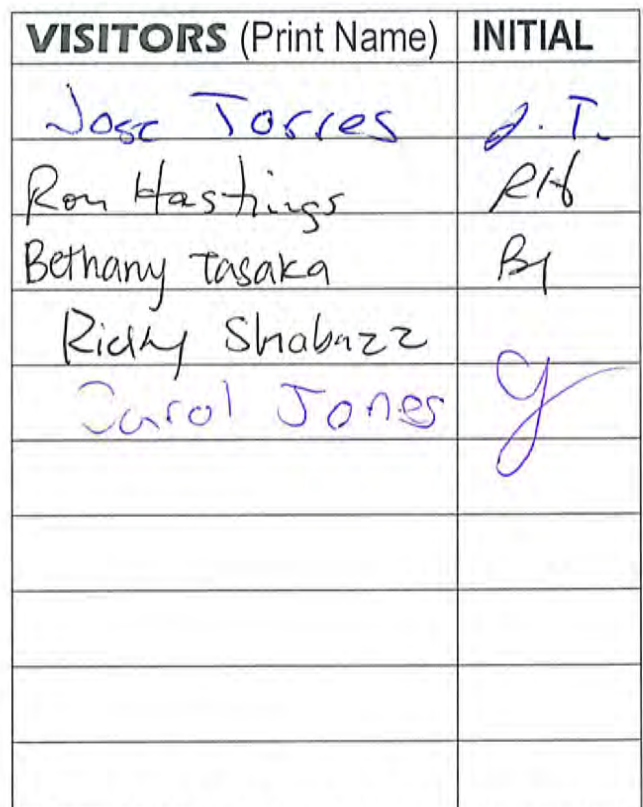 VISITORS (Print Name) INITIAL
Jose Torres J.T.
Ron Hastings RH
Bethany Tasaka BT
Ricky Shabazz
Carol Jones CJ